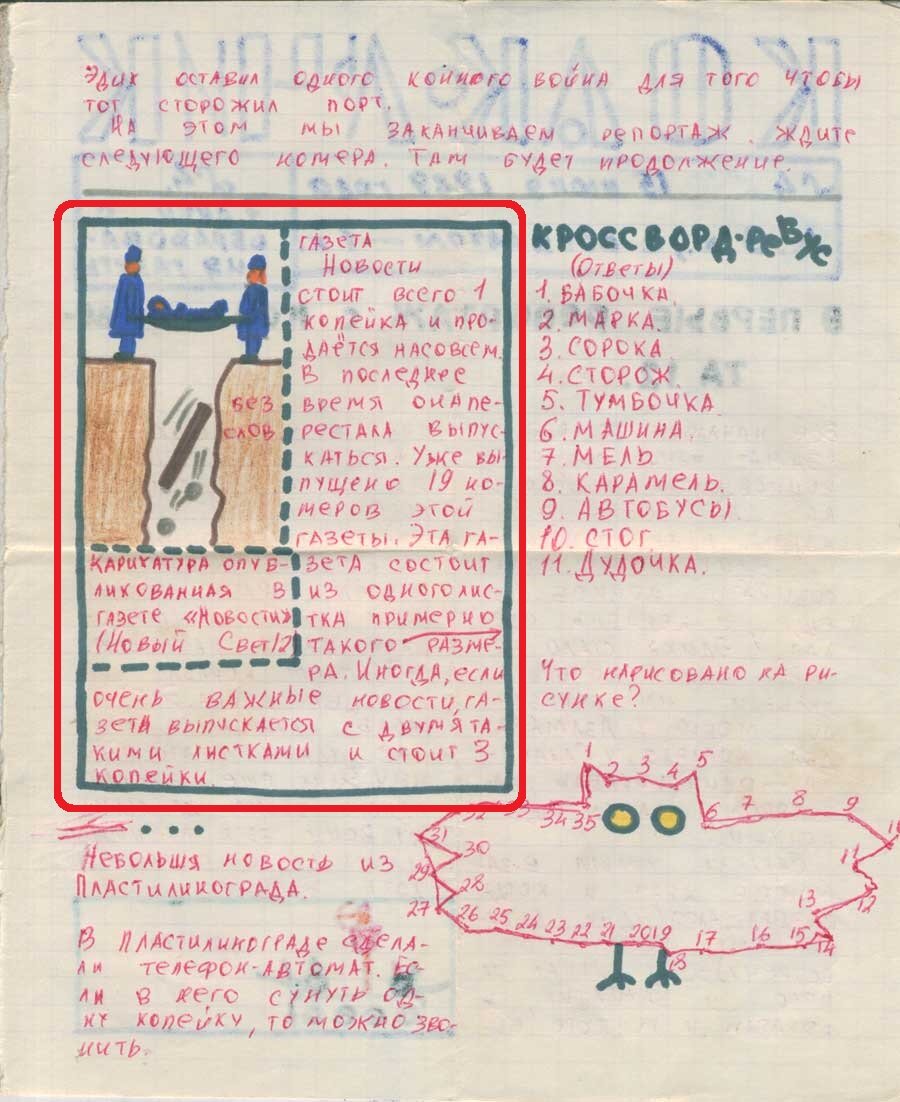 Эдик оставил одного конного война для того чтобы
тот сторожил порт.
На этом мы заканчиваем репортаж. Ждите
следующего номера. Там будет продолжение.
БЕЗ
СЛОВ
КАРИКАТУРА ОПУБ-
ЛИКОВАННАЯ В
ГАЗЕТЕ «НОВОСТИ»
(НОВЫЙ СВЕТ)2
ГАЗЕТА
НОВОСТИ
СТОИТ ВСЕГО 1
КОПЕЙКА И ПРО-
ДАЁТСЯ НАСОВСЕМ.
В ПОСЛЕДНЕЕ
ВРЕМЯ ОНА ПЕ-
РЕСТАЛА ВЫПУС-
КАТЬСЯ. УЖЕ ВЫ-
ПУЩЕНО 19 НО-
МЕРОВ ЭТОЙ
ГАЗЕТЫ. ЭТА ГА-
ЗЕТА СОСТОИТ
ИЗ ОДНОГО ЛИС-
ТКА ПРИМЕРНО
ТАКОГО РАЗМЕ-
РА. ИНОГДА, ЕСЛИ
ОЧЕНЬ ВАЖНЫЕ НОВОСТИ, ГА-
ЗЕТА ВЫПУСКАЕТСЯ С ДВУМЯ ТА-
КИМИ ЛИСТКАМИ И СТОИТ 3
КОПЕЙКИ.
КРОССВОРД-РЕВЖЕ
(Ответы)
1. БАБОЧКА.
2. МАРКА.
3. СОРОКА
4. СТОРОЖ
5. ТУМБОЧКА
6. МАШИНА.
7. МЕЛЬ
8. КАРАМЕЛЬ.
9. АВТОБУСЫ.
10. СТОГ.
11. ДУДОЧКА.
Что нарисовано на ри-
сунке?
1 2 3 4 5
6 7 8 9 10
11 12 13 14 15 16 17 18
19 20 21 22 23 24 25 26
27 28 29 30 31 32 33 34 35
Небольшя новость из
Пластилинограда.
В Пластилинограде сдела-
ли телефон-автомат. Ес-
ли в него сунуть од-
ну копейку, то можно зво-
нить.